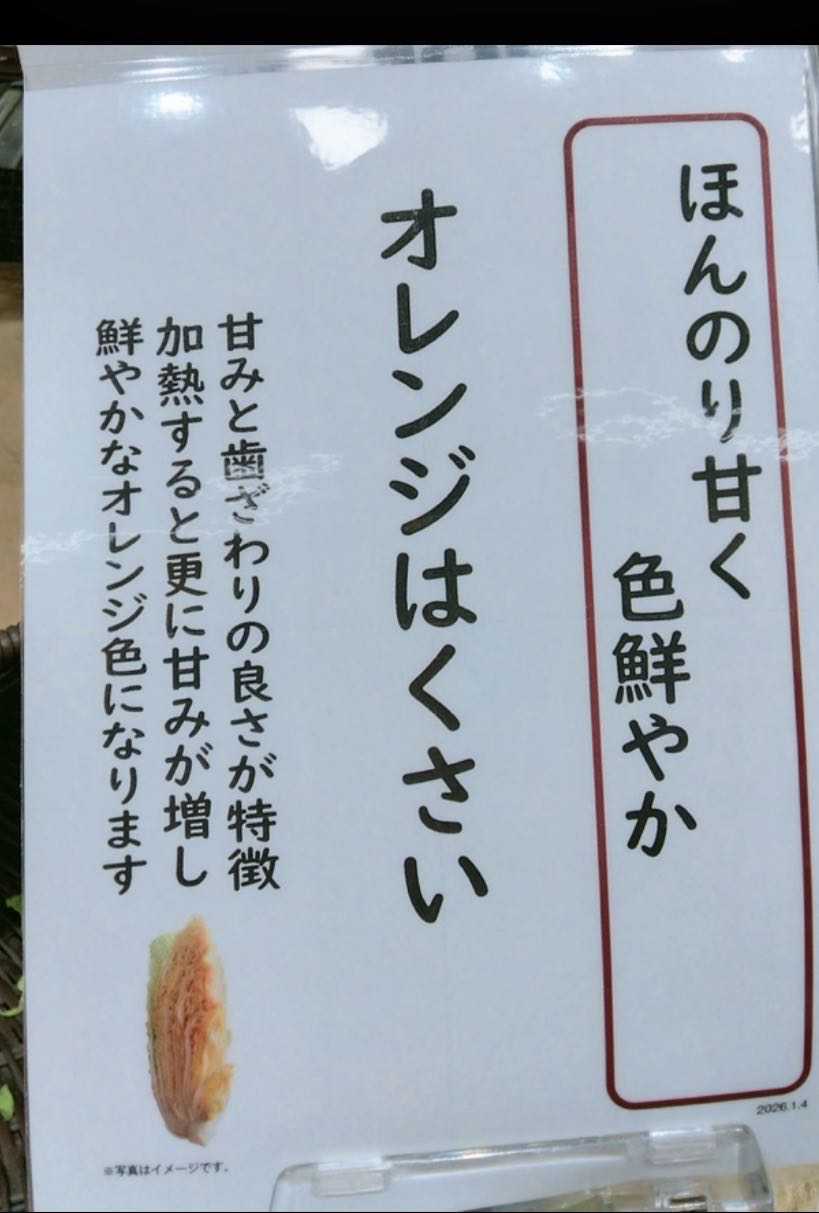 ほんのり甘く
色鮮やか
オレンジはくさい
甘みと歯ざわりの良さが特徴
加熱すると更に甘みが増し
鮮やかなオレンジ色になります
※写真はイメージです。
2026.1.4